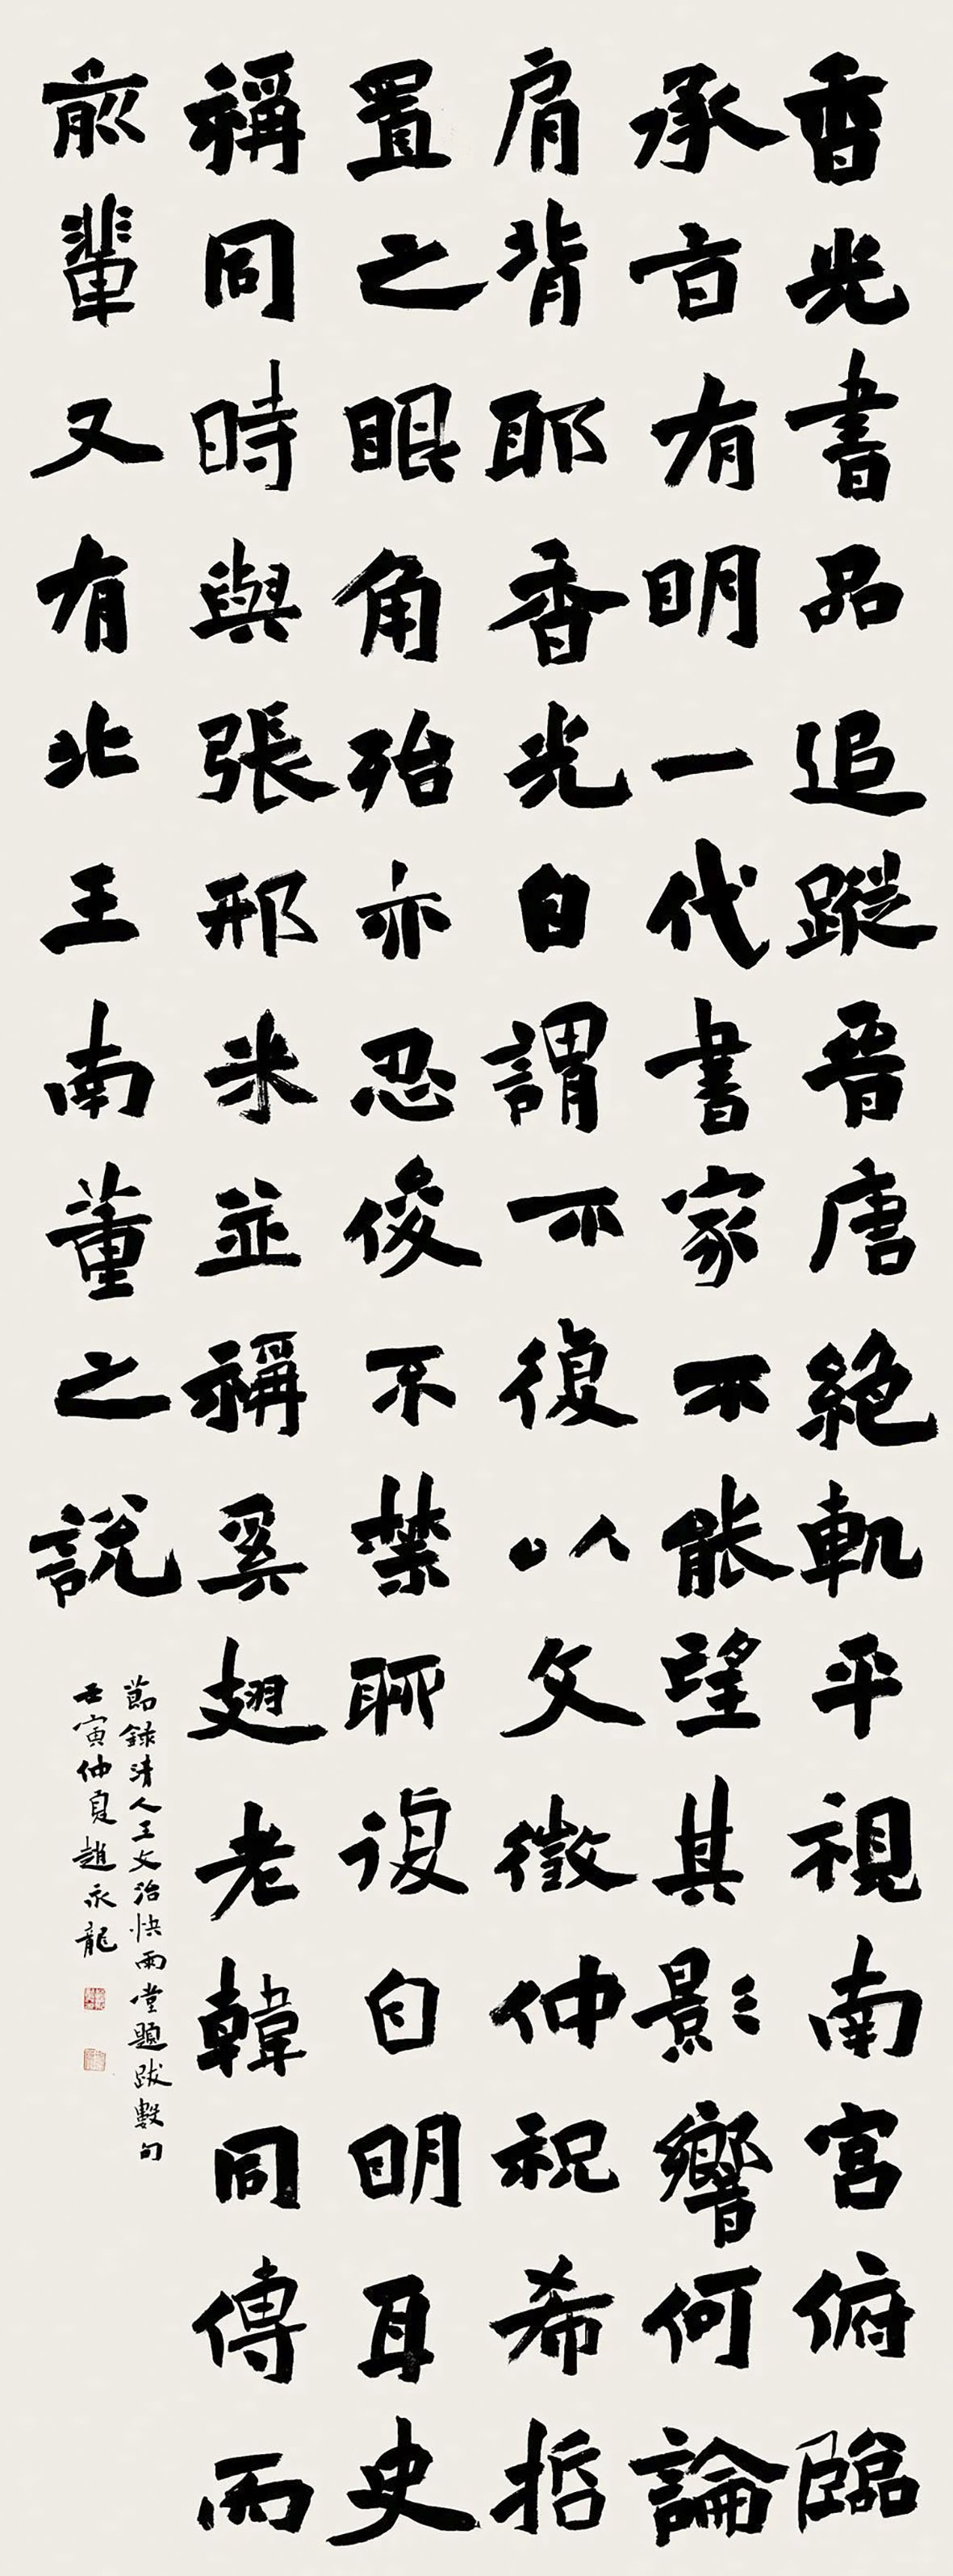 香光書品追蹤晉唐絕軌平視南宮俯臨
承旨有明一代書家不能望其影響何論
肩背耶香光自謂不復以文徵仲祝希哲
置之眼角殆亦忍俊不禁聊復自明耳史
稱同時與張邢米並稱奚翅老韓同傳而
前輩又有北王南董之說
節錄清人王文治快雨堂題跋數句
壬寅仲夏趙永龍